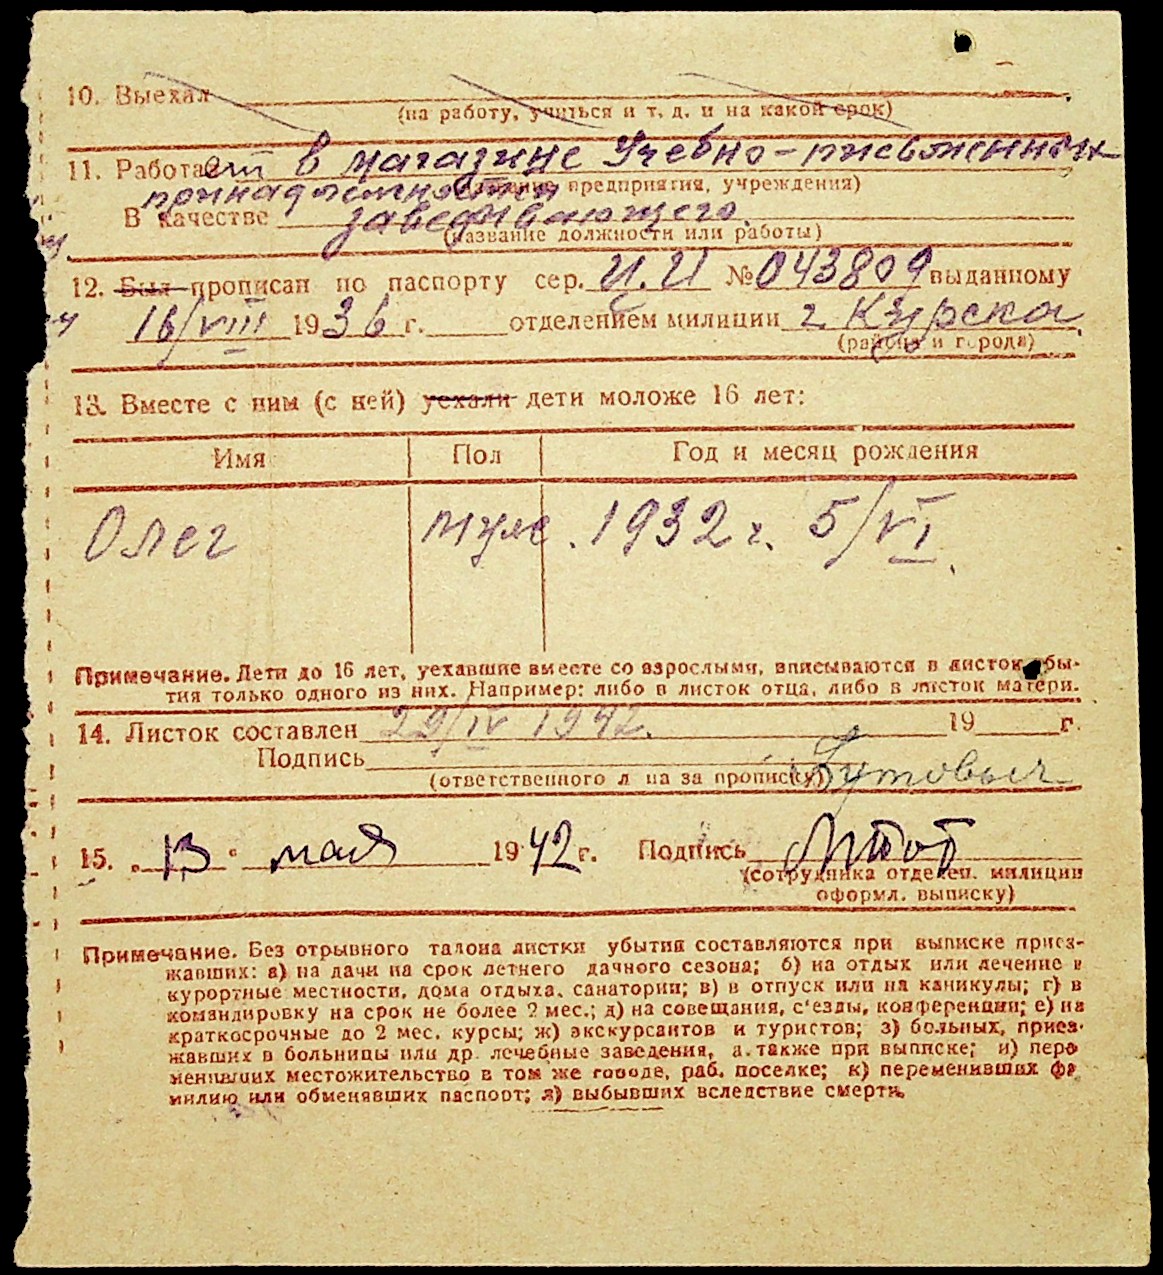 10. Выехал
(на работу, учиться и т. д. и на какой срок)
11. Работает в магазине Учебно-письменных
(название предприятия, учреждения)
принадлежностей
В качестве заведывающего.
(название должности или работы)
12. Был прописан по паспорту сер. И.И №043809 выданному
16/VIII 1936 г. отделением милиции г. Курска.
(района и города)
13. Вместе с ним (с ней) уехали дети моложе 16 лет:
Имя Пол Год и месяц рождения
Олег муж. 1932 г. 5/VI.
Примечание. Дети до 16 лет, уехавшие вместе со взрослыми, вписываются в листок убы-
тия только одного из них. Например: либо в листок отца, либо в листок матери.
14. Листок составлен 29/IV 1942. 19 г.
Подпись
(ответственного л на за прописку)
15. „13" мая 1942 г. Подпись
(сотрудника отделен. милиции
оформл. выписку)
Примечание. Без отрывного талона листки убытия составляются при выписке приез-
жавших: а) на дачи на срок летнего дачного сезона; б) на отдых или лечение в
курортные местности, дома отдыха, санатории; в) в отпуск или на каникулы; г) в
командировку на срок не более 2 мес.; д) на совещания, с'езды, конференции; е) на
краткосрочные до 2 мес. курсы; ж) экскурсантов и туристов; з) больных, приез-
жавших в больницы или др. лечебные заведения, а также при выписке; и) пере
менивших местожительство в том же городе, раб. поселке; к) переменивших фа
милию или обменявших паспорт; л) выбывших вследствие смерти.